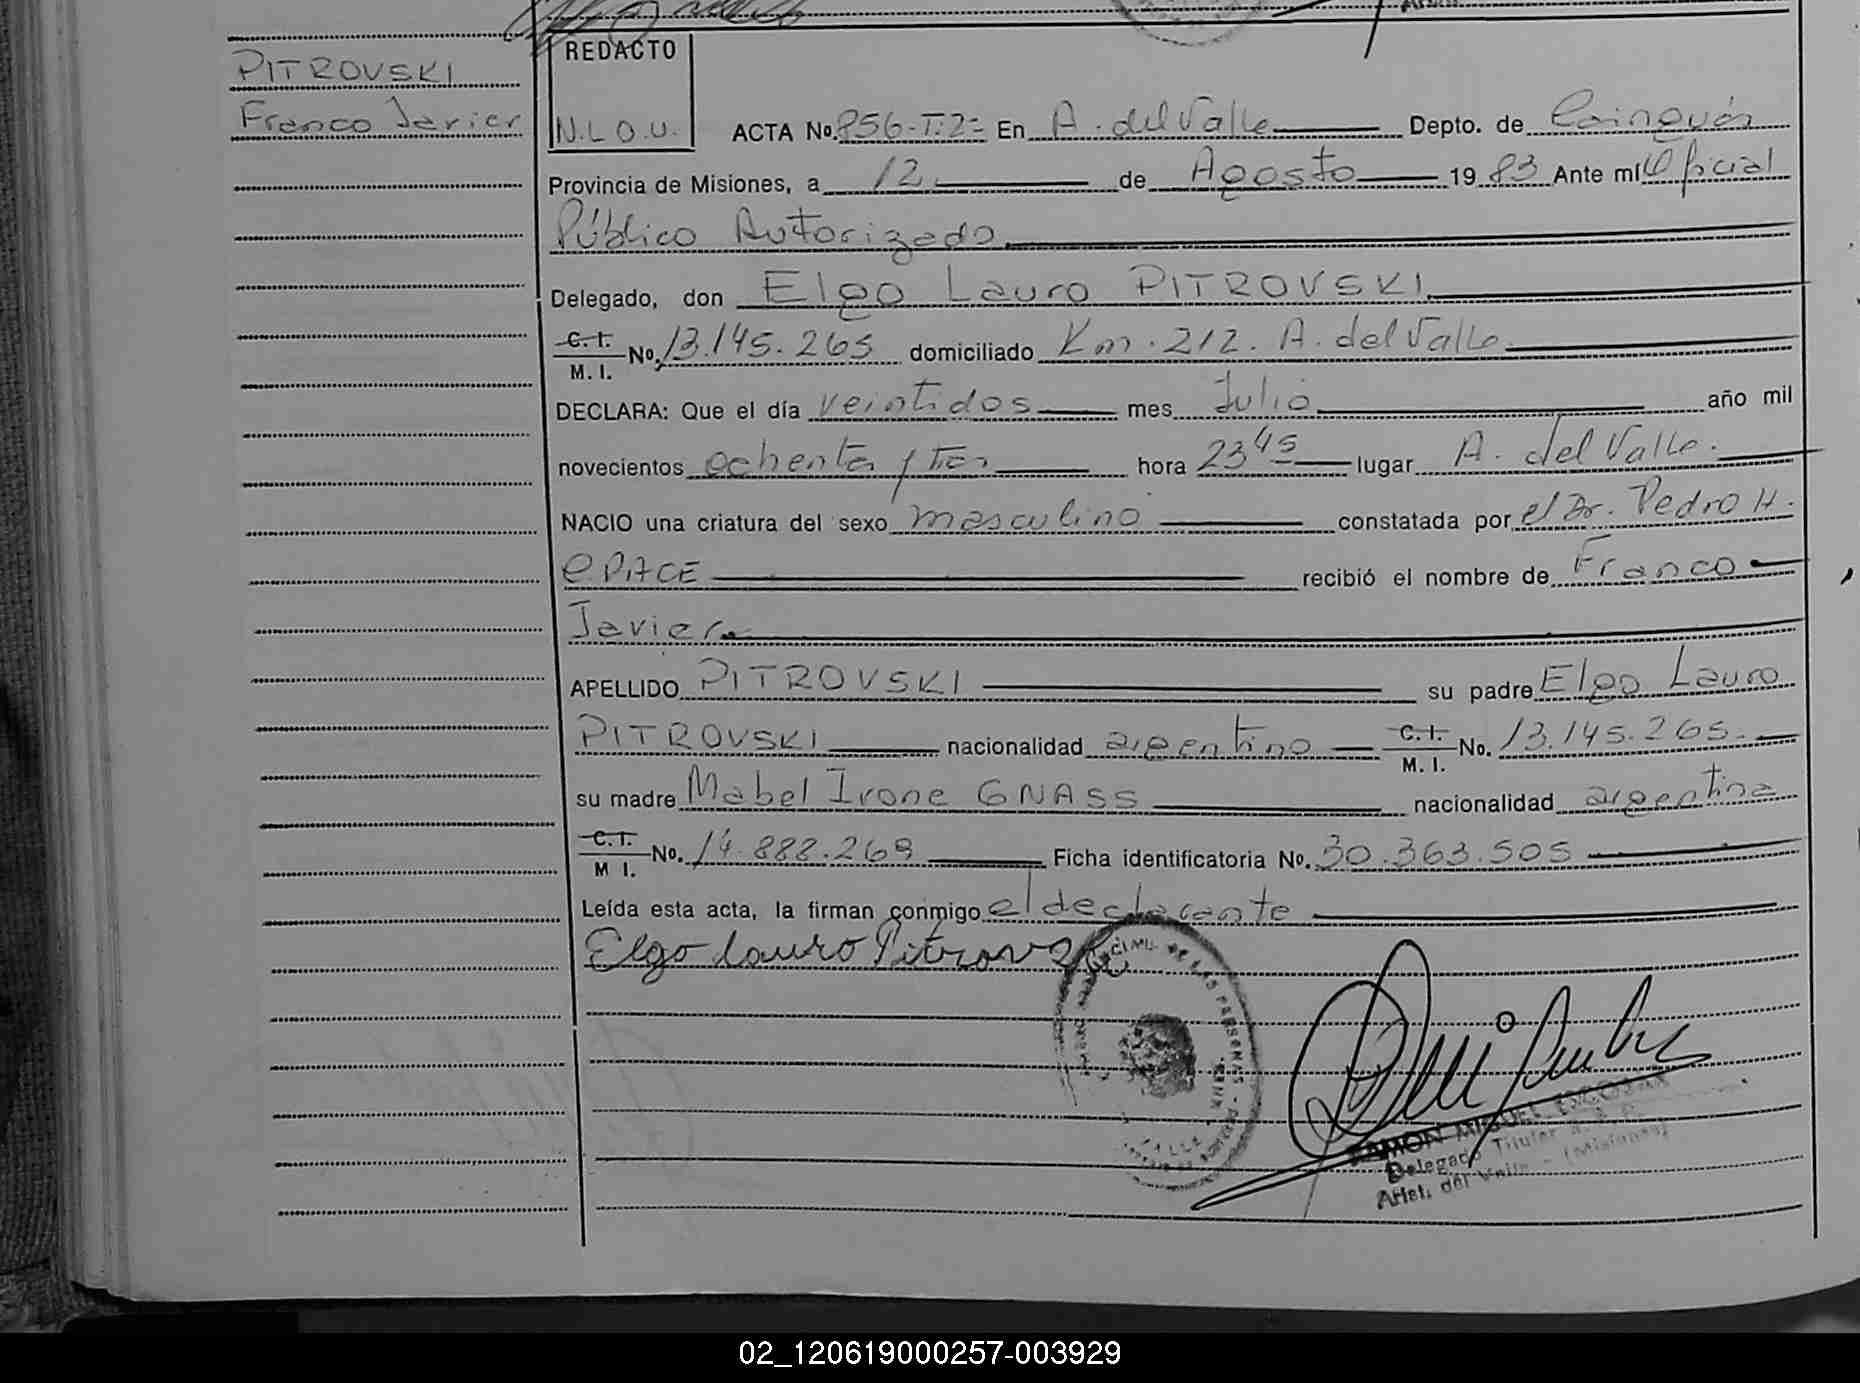 PITROVSKI
Franco Javier
REDACTO
N.L.O.U.
ACTA No. 856-T:2= En A. del Valle Depto. de Cainguás
Provincia de Misiones, a 12 de Agosto 1983 Ante mí Oficial
Público Autorizado
Delegado, don Elgo Lauro PITROVSKI
C.I. M.I. No. 13.145.265 domiciliado Km. 212. A. del Valle.
DECLARA: Que el día veintidos mes Julio año mil
novecientos ochenta y tres hora 23 45 lugar A. del Valle.
NACIO una criatura del sexo masculino constatada por el Dr. Pedro H.
recibió el nombre de Franco
Javier
APELLIDO PITROVSKI su padre Elgo Lauro
PITROVSKI nacionalidad argentino C.I. M.I. No. 13.145.265.
su madre Mabel Irone GNASS nacionalidad argentina
C.I. M I. No. 14.888.269 Ficha identificatoria No. 30.363.505
Leída esta acta, la firman conmigo el declarante
Elgo Lauro Pitrovski
DE LAS PERSONAS
RAMON MIGUEL ESCOBAR
Delegado Titular
Arist. del Valle - (Misiones)
02_120619000257-003929